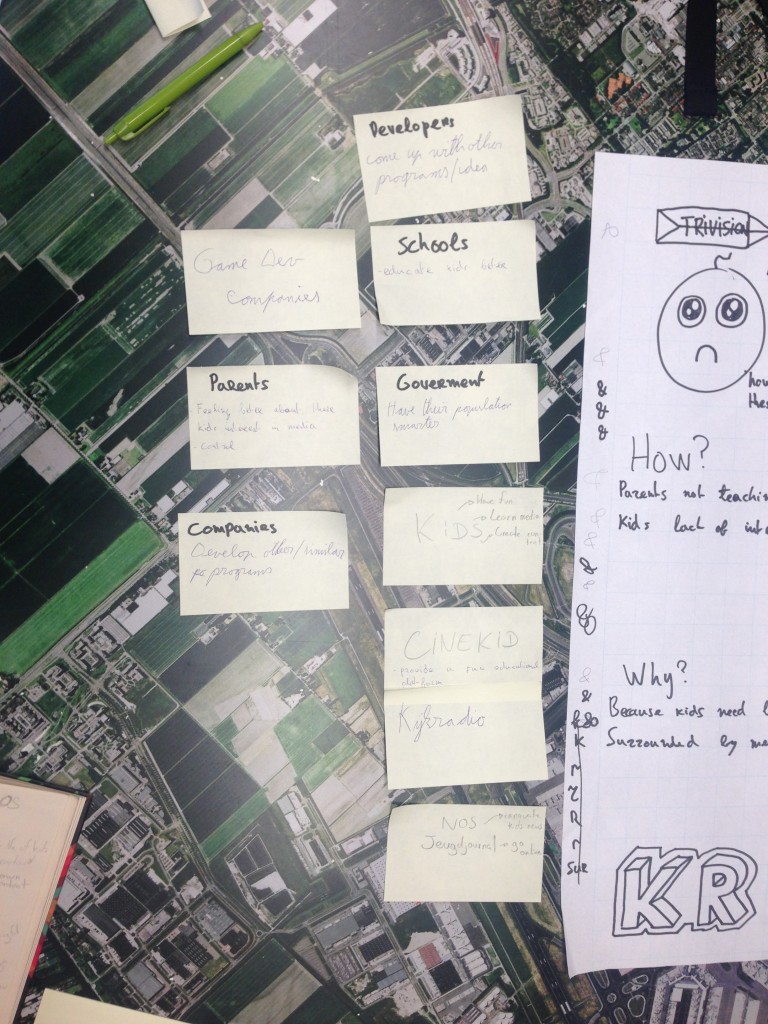 Developers
come up with other
programs/idea
Game Dev
Companies
Schools
-educate kids better
Parents
- Feeling better about their
kids interest in media
- Control
Goverment
Have their population
smarter
Companies
Develop other/similar
programs
KiDS
Have fun
Learn
Create
CiNEKiD
- provide a educational
Kykradio
NOS
Jeugdjournal
TRiViSiON
how
How?
Parents not teachin
Kids lack of int
Why?
Because kids need
Surrounded by me
KR